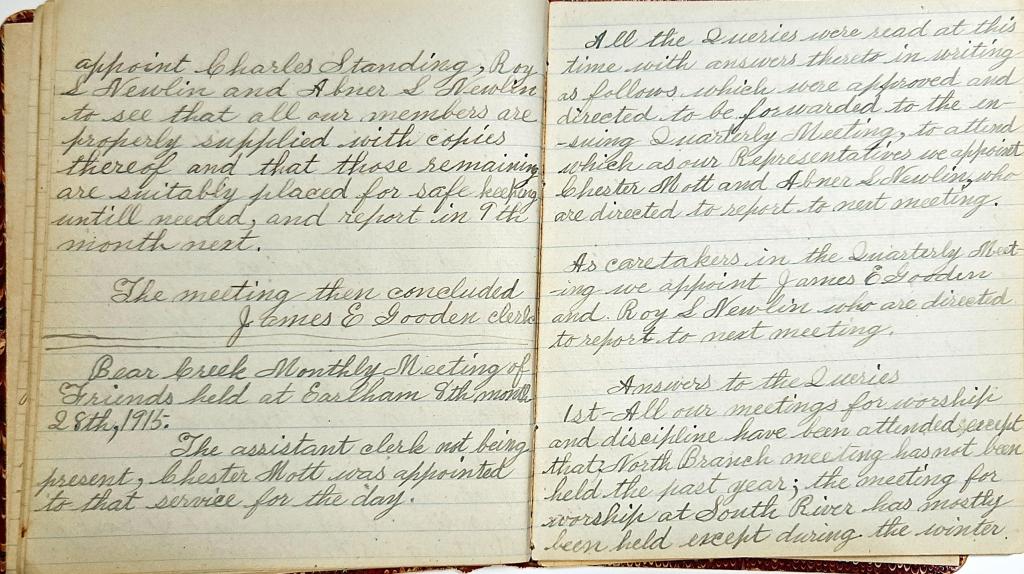 appoint Charles Standing, Roy
L Newlin and Abner L Newlin
to see that all our members are
properly supplied with copies
thereof and that those remaining
are suitably placed for safe keeping
untill needed, and report in 9th
month next.
The meeting then concluded
James E Gooden clerk
Bear Creek Monthly Meeting of
Friends held at Earlham 8th month
28th, 1915.
The assistant clerk not being
present, Chester Mott was appointed
to that service for the day.
All the Queries were read at this
time with answers thereto in writing
as follows which were approved and
directed to be forwarded to the in-
-suing Quarterly Meeting, to attend
which as our Representatives we appoint
Chester Mott and Abner L Newlin, who
are directed to report to next meeting.
As caretakers in the Quarterly Meet-
-ing we appoint James E Gooden
and Roy L Newlin who are directed
to report to next meeting.
Answers to the Queries
1st - All our meetings for worship
and discipline have been attended, except
that North Branch meeting has not been
held the past year; the meeting for
worship at South River has mostly
been held except during the winter.